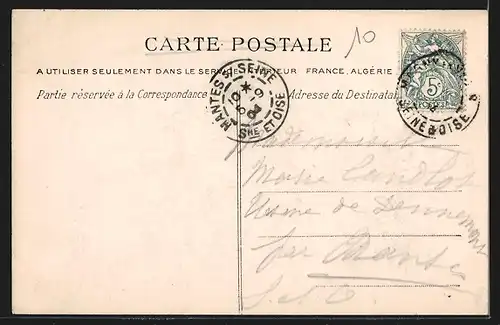 10
CARTE POSTALE
A UTILISER SEULEMENT DANS LE SERVICE FRANCE, ALGÉRIE
Partie réservée à la Correspondance
Adresse du Destinataire
MANTES S. SEINE
SNE ET OISE
5c
SEINE & OISE
Mademoiselle
Marie
Usine de Dennemont
par Mantes
S. et O.